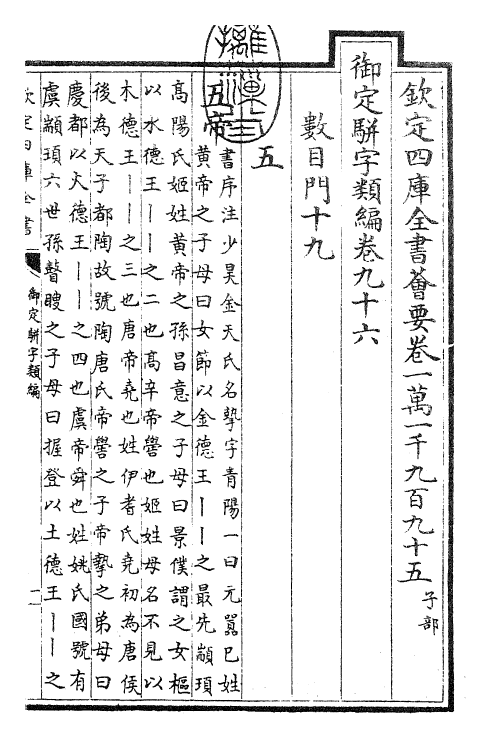 欽定四庫全書薈要卷一萬一千九百九十五 子部
御定駢字類編卷九十六
數目門十九
五
五帝 書序注少昊金天氏名摯字青陽一曰元囂巳姓
黃帝之子母曰女節以金德王丨丨之最先顓頊
高陽氏姬姓黃帝之孫昌意之子母曰景僕謂之女樞
以水德王丨丨之二也高辛帝嚳也姬姓母名不見以
木德王丨丨之三也唐帝堯也姓伊耆氏堯初為唐侯
後為天子都陶故號陶唐氏帝嚳之子帝摯之弟母曰
慶都以火德王丨丨之四也虞帝舜也姓姚氏國號有
虞顓頊六世孫瞽瞍之子母曰握登以土德王丨丨之
欽定四庫全書
御定駢字類編